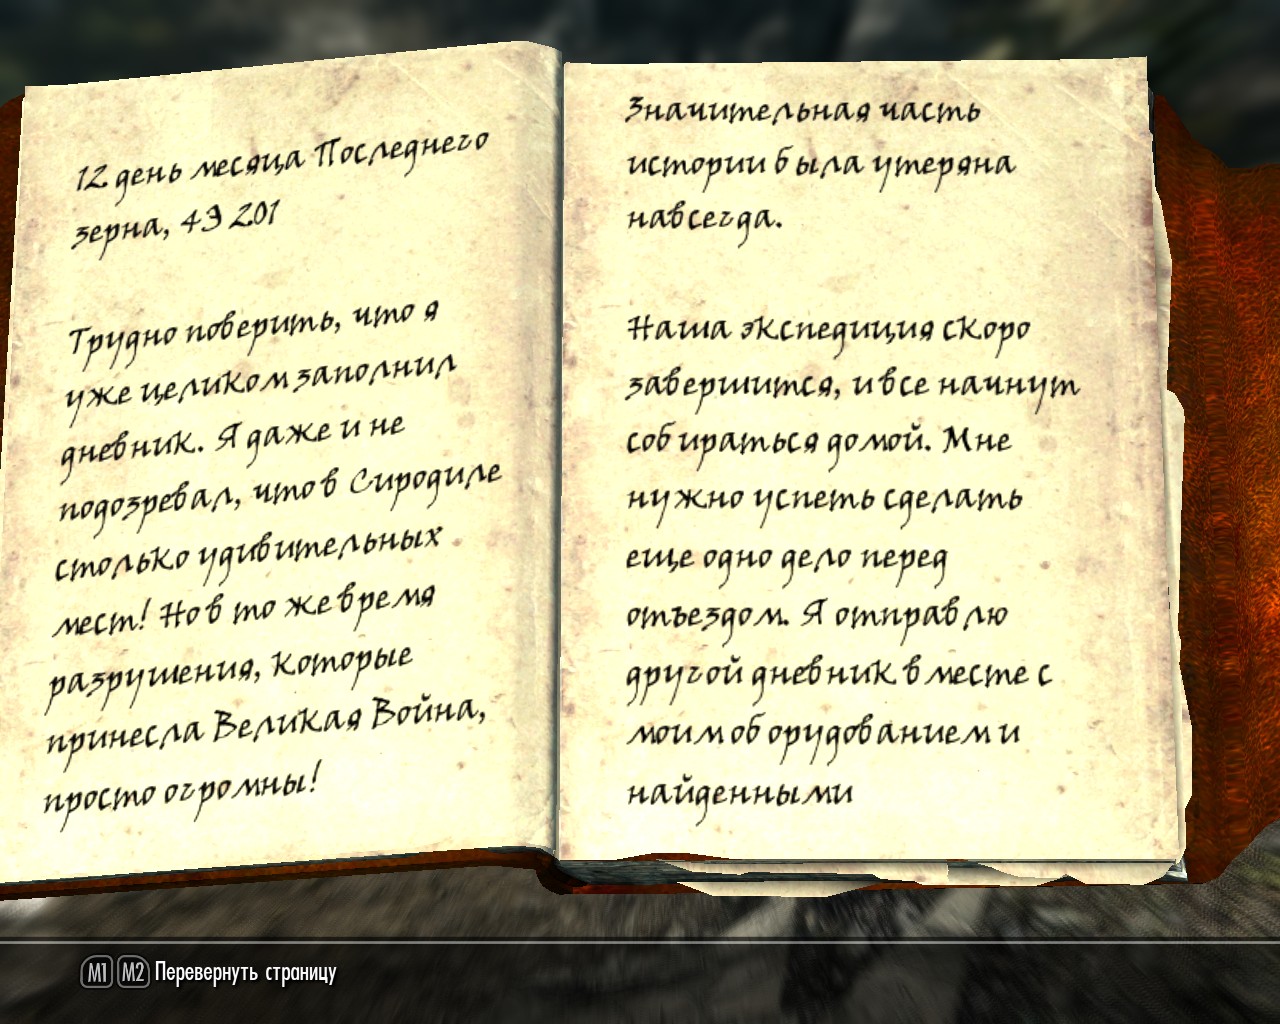 12 день месяца Последнего
зерна, 4Э 201
Трудно поверить, что я
уже целиком заполнил
дневник. Я даже и не
подозревал, что в Сиродиле
столько удивительных
мест! Но в то же время
разрушения, которые
принесла Великая Война,
просто огромны!
Значительная часть
истории была утеряна
навсегда.
Наша экспедиция скоро
завершится, и все начнут
собираться домой. Мне
нужно успеть сделать
еще одно дело перед
отъездом. Я отправлю
другой дневник вместе с
моим оборудованием и
найденными
M1 M2 Перевернуть страницу